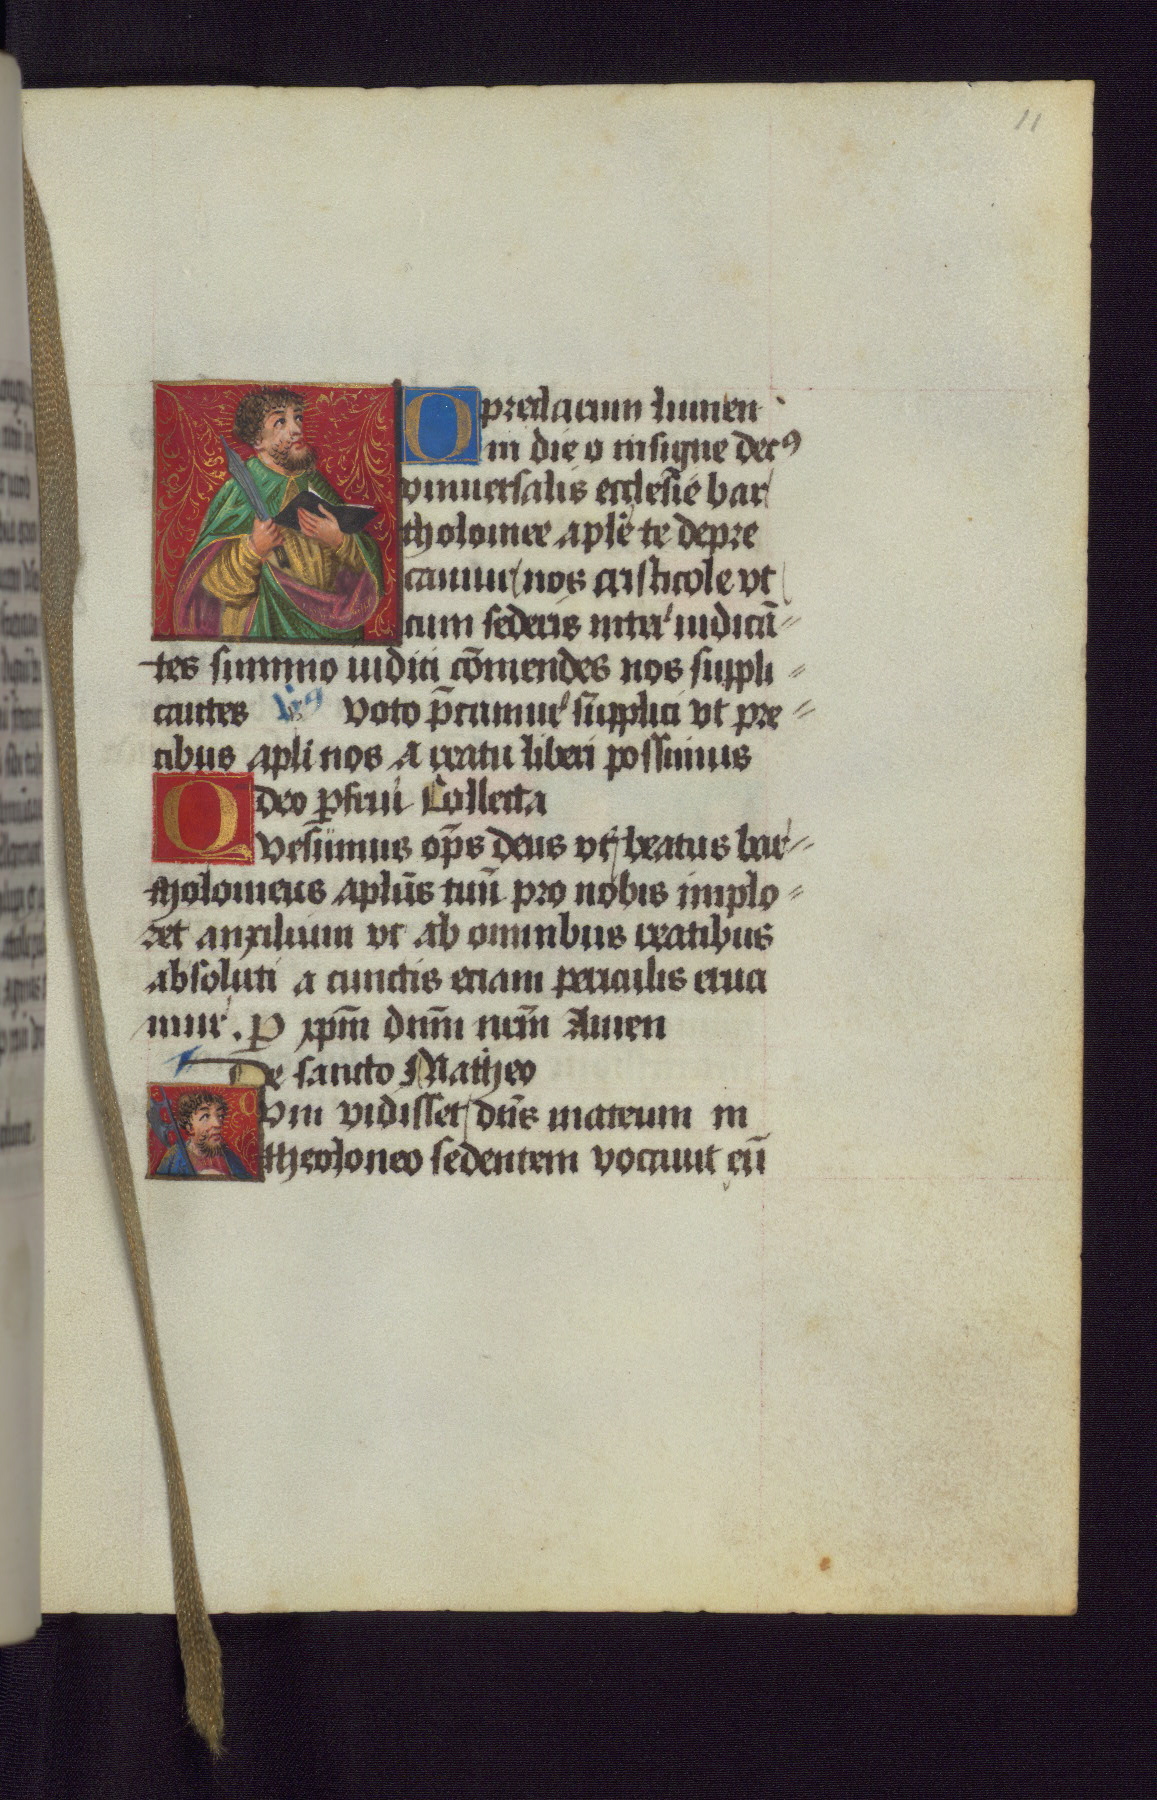 11
O preclarum lumen
in die o insigne decꝰ
vniuersalis ecclesie bar
tholomee aplē te depre
camur nos cristicole vt
cum sederis inter iudicā
tes summo iudici cōmendes nos suppli
cantes voto p̄camur supplici vt pre
cibus apli nos a reatu liberi possimus
deo ꝑfrui Collecta
Quesumus op̄s deus vt beatus bar
tholomeus aplūs tuū pro nobis implo
ret auxilium vt ab omnibus reatibus
absoluti a cunctis eciam periculis erua
mur. P xpm̄ dnm̄ nrm̄ Amen
De sancto Matheo
Cum vidisset dn̄s mateum in
theoloneo sedentem vocauit eū